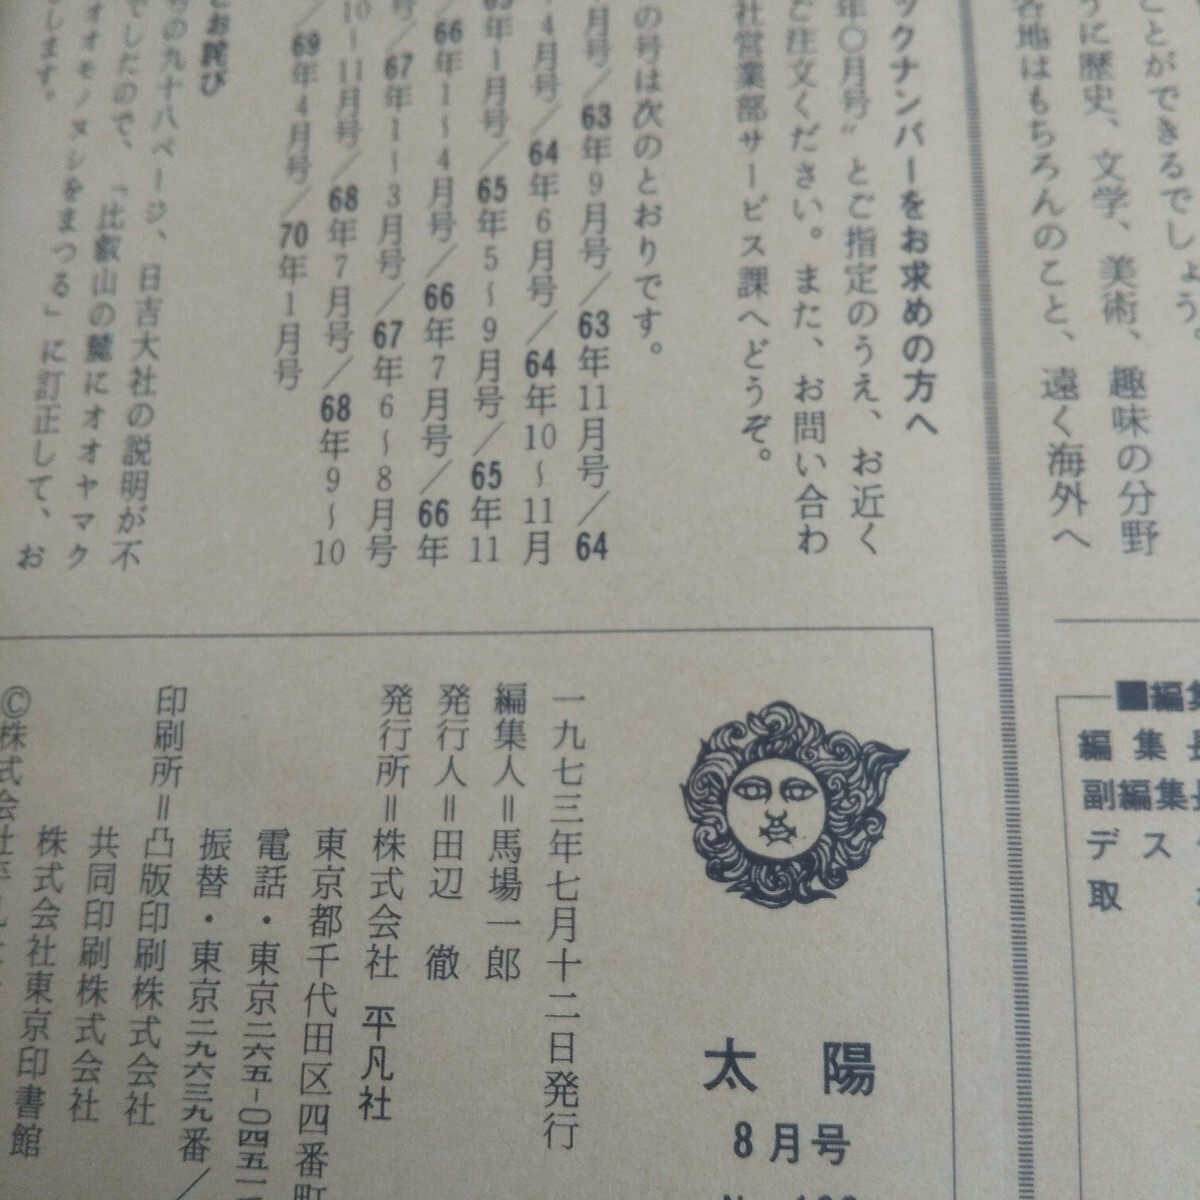 ことができるでしょう。
うに歴史、文学、美術、趣味の分野
各地はもちろんのこと、遠く海外へ
ックナンバーをお求めの方へ
年〇月号〟とご指定のうえ、お近く
ご注文ください。また、お問い合わ
社営業部サービス課へどうぞ。
の号は次のとおりです。
月号/63年9月号/63年11月号/64
4月号/64年6月号/64年10〜11月
年1月号/65年5〜9月号/65年11
66年1〜4月号/66年7月号/66年
号/67年1〜3月号/67年6〜8月号
10〜11月号/68年7月号/68年9〜10
69年4月号/70年1月号
とお詫び
号の九十八ページ、日吉大社の説明が不
でしたので、「比叡山の麓にオオヤマク
オオモノヌシをまつる」に訂正して、お
します。
■編集
編集長
副編集長
デス
取
太陽
8月号
一九七三年七月十二日発行
編集人＝馬場一郎
発行人＝田辺 徹
発行所＝株式会社 平凡社
東京都千代田区四番町
電話・東京二六五-〇四五一
振替・東京二九六三九番/
印刷所＝凸版印刷株式会社
共同印刷株式会社
株式会社東京印書館
©株式会社平凡社